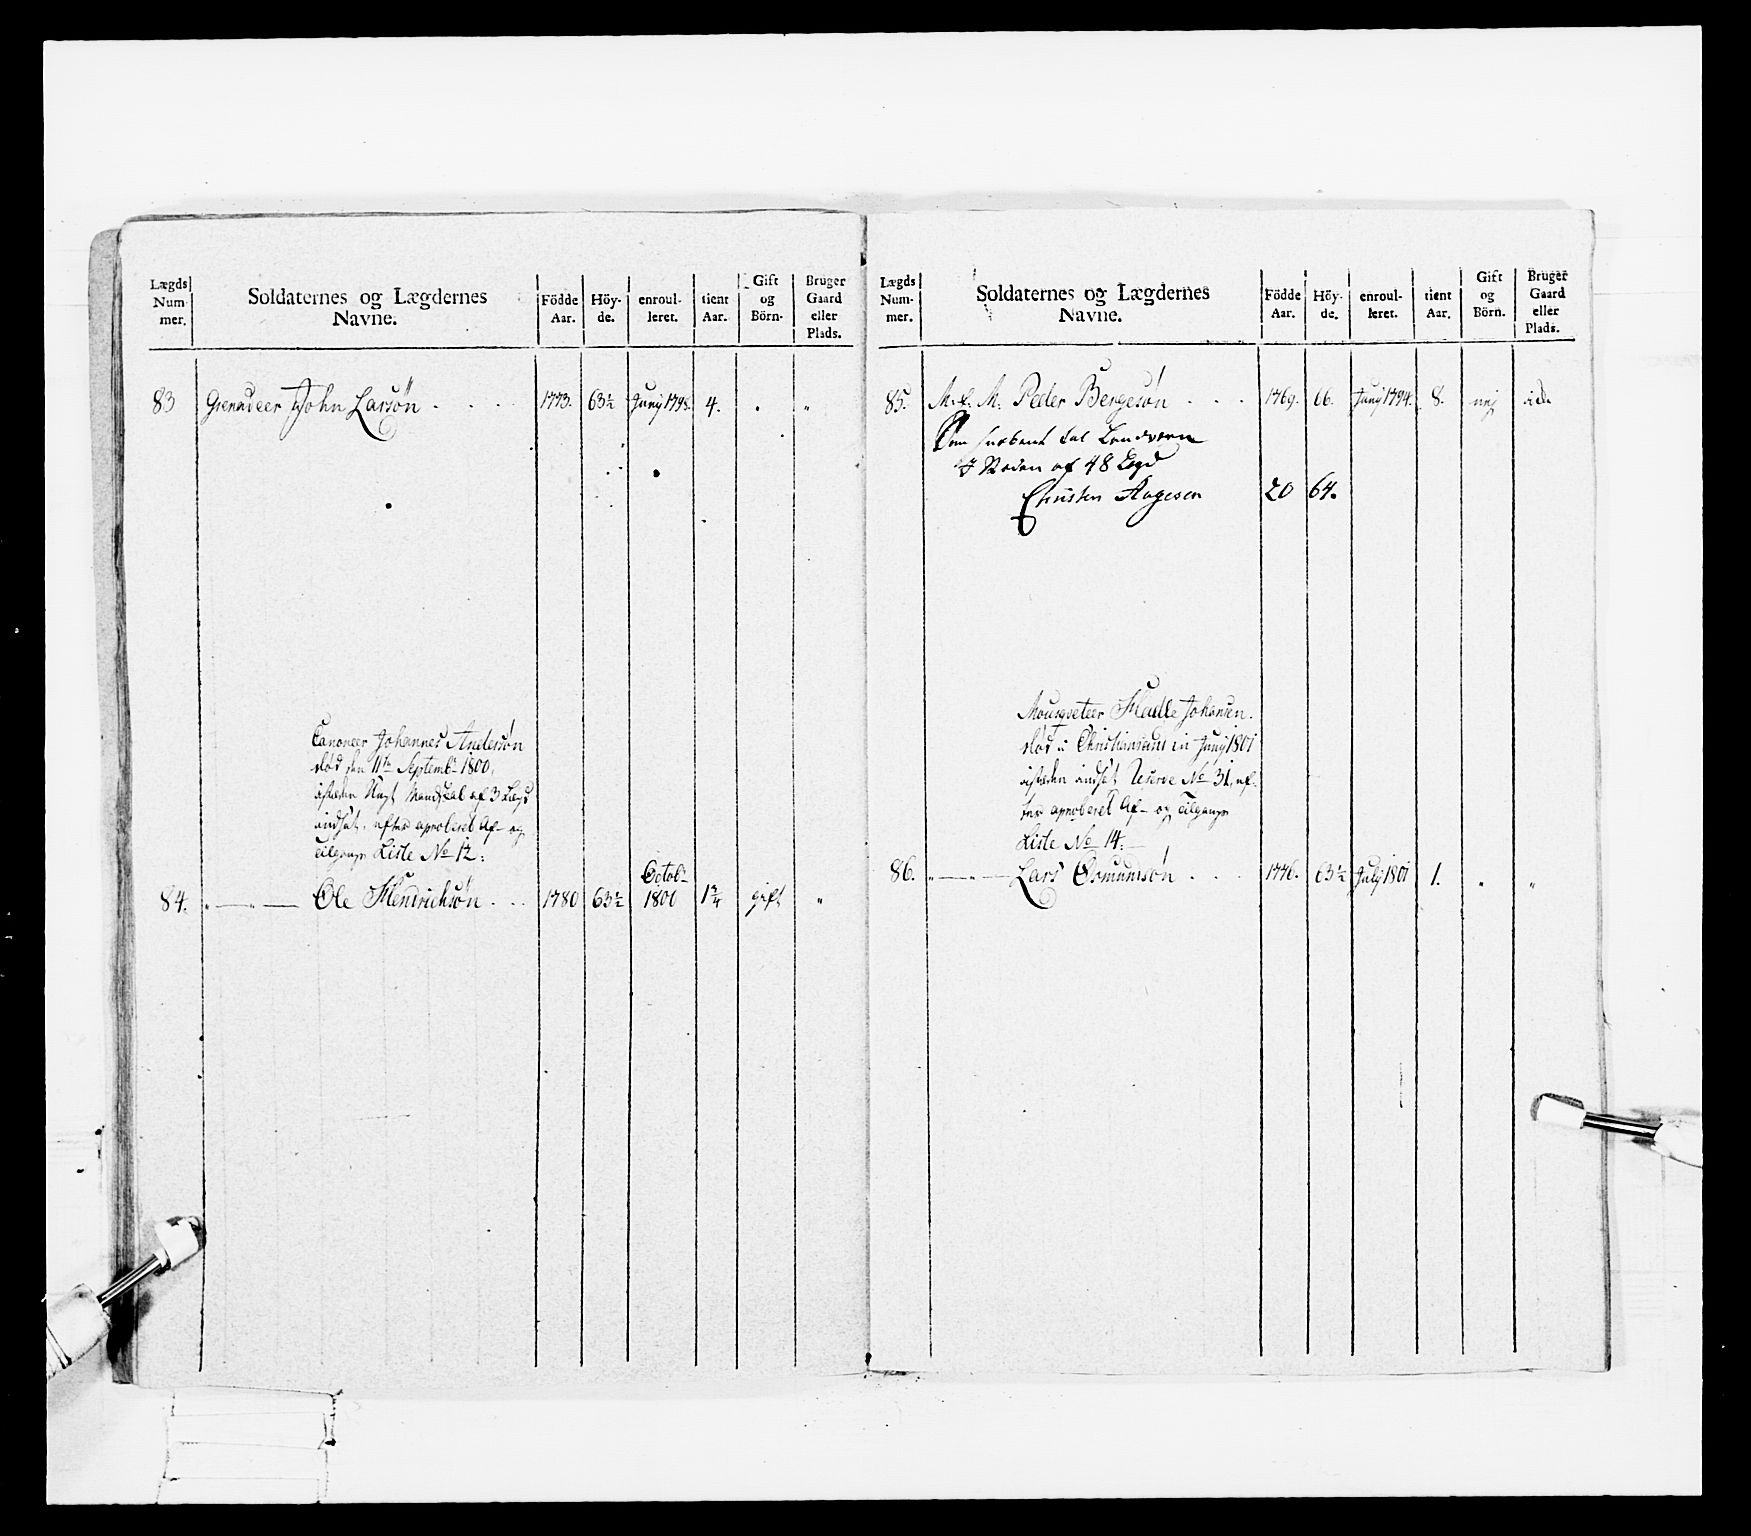 Lægds Num- mer.
Soldaternes og Lægdernes Navne.
Födde Aar.
Höy- de.
enroul- leret.
tient Aar.
Gift og Börn.
Bruger Gaard eller Plads.
83 Grenadeer John Larsøn 1773. 63½ Junÿ 1798. 4. . "
Canoneer Johannes Andersøn
død den 11te Septembr 1800,
isteden Ungt Mandskal af 3 Lægd
indsat, efter aproberet Af- og
Tilgangs Liste No 12:
Octobr
84. " — " — Ole Hendrichsøn 1780 63½ 1800 1¼ gift "
Lægds Num- mer.
Soldaternes og Lægdernes Navne.
Födde Aar.
Höy- de.
enroul- leret.
tient Aar.
Gift og Börn.
Bruger Gaard eller Plads.
85. M. Peder Bergesøn 1769. 66. Junÿ 1794. 8. nej
til Landværn
I Steden af 48 Lægd
Christen Aagesen 20 64.
Mousqveteer Halle Johansen
død i Christiansand in Junÿ 1801
isteden indsat Reserve No 31, ef-
ter aproberet Af- og Tilgangs
Liste No 14:
86. " — " — Lars Osmundsøn 1776. 63½ Julÿ 1801 1. " "